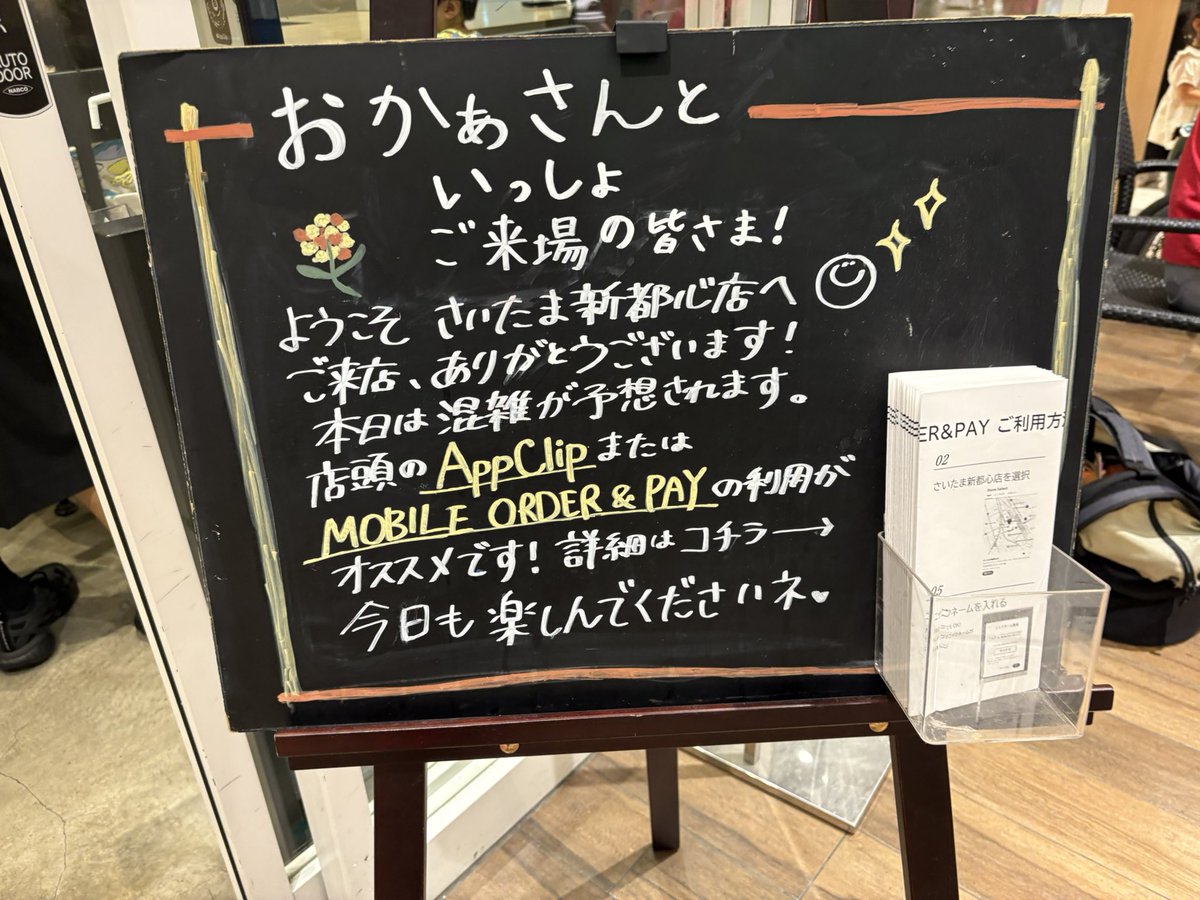 おかぁさんと
いっしょ
ご来場の皆さま!
ようこそ さいたま新都心店へ
ご来店、ありがとうございます!
本日は混雑が予想されます。
店頭の AppClip または
MOBILE ORDER & PAY の利用が
オススメです! 詳細はコチラ→
今日も楽しんでくださいネ♥
ER&PAY ご利用方法
02
さいたま新都心店を選択
05
ネームを入れる
AUTO
DOOR
NABCO